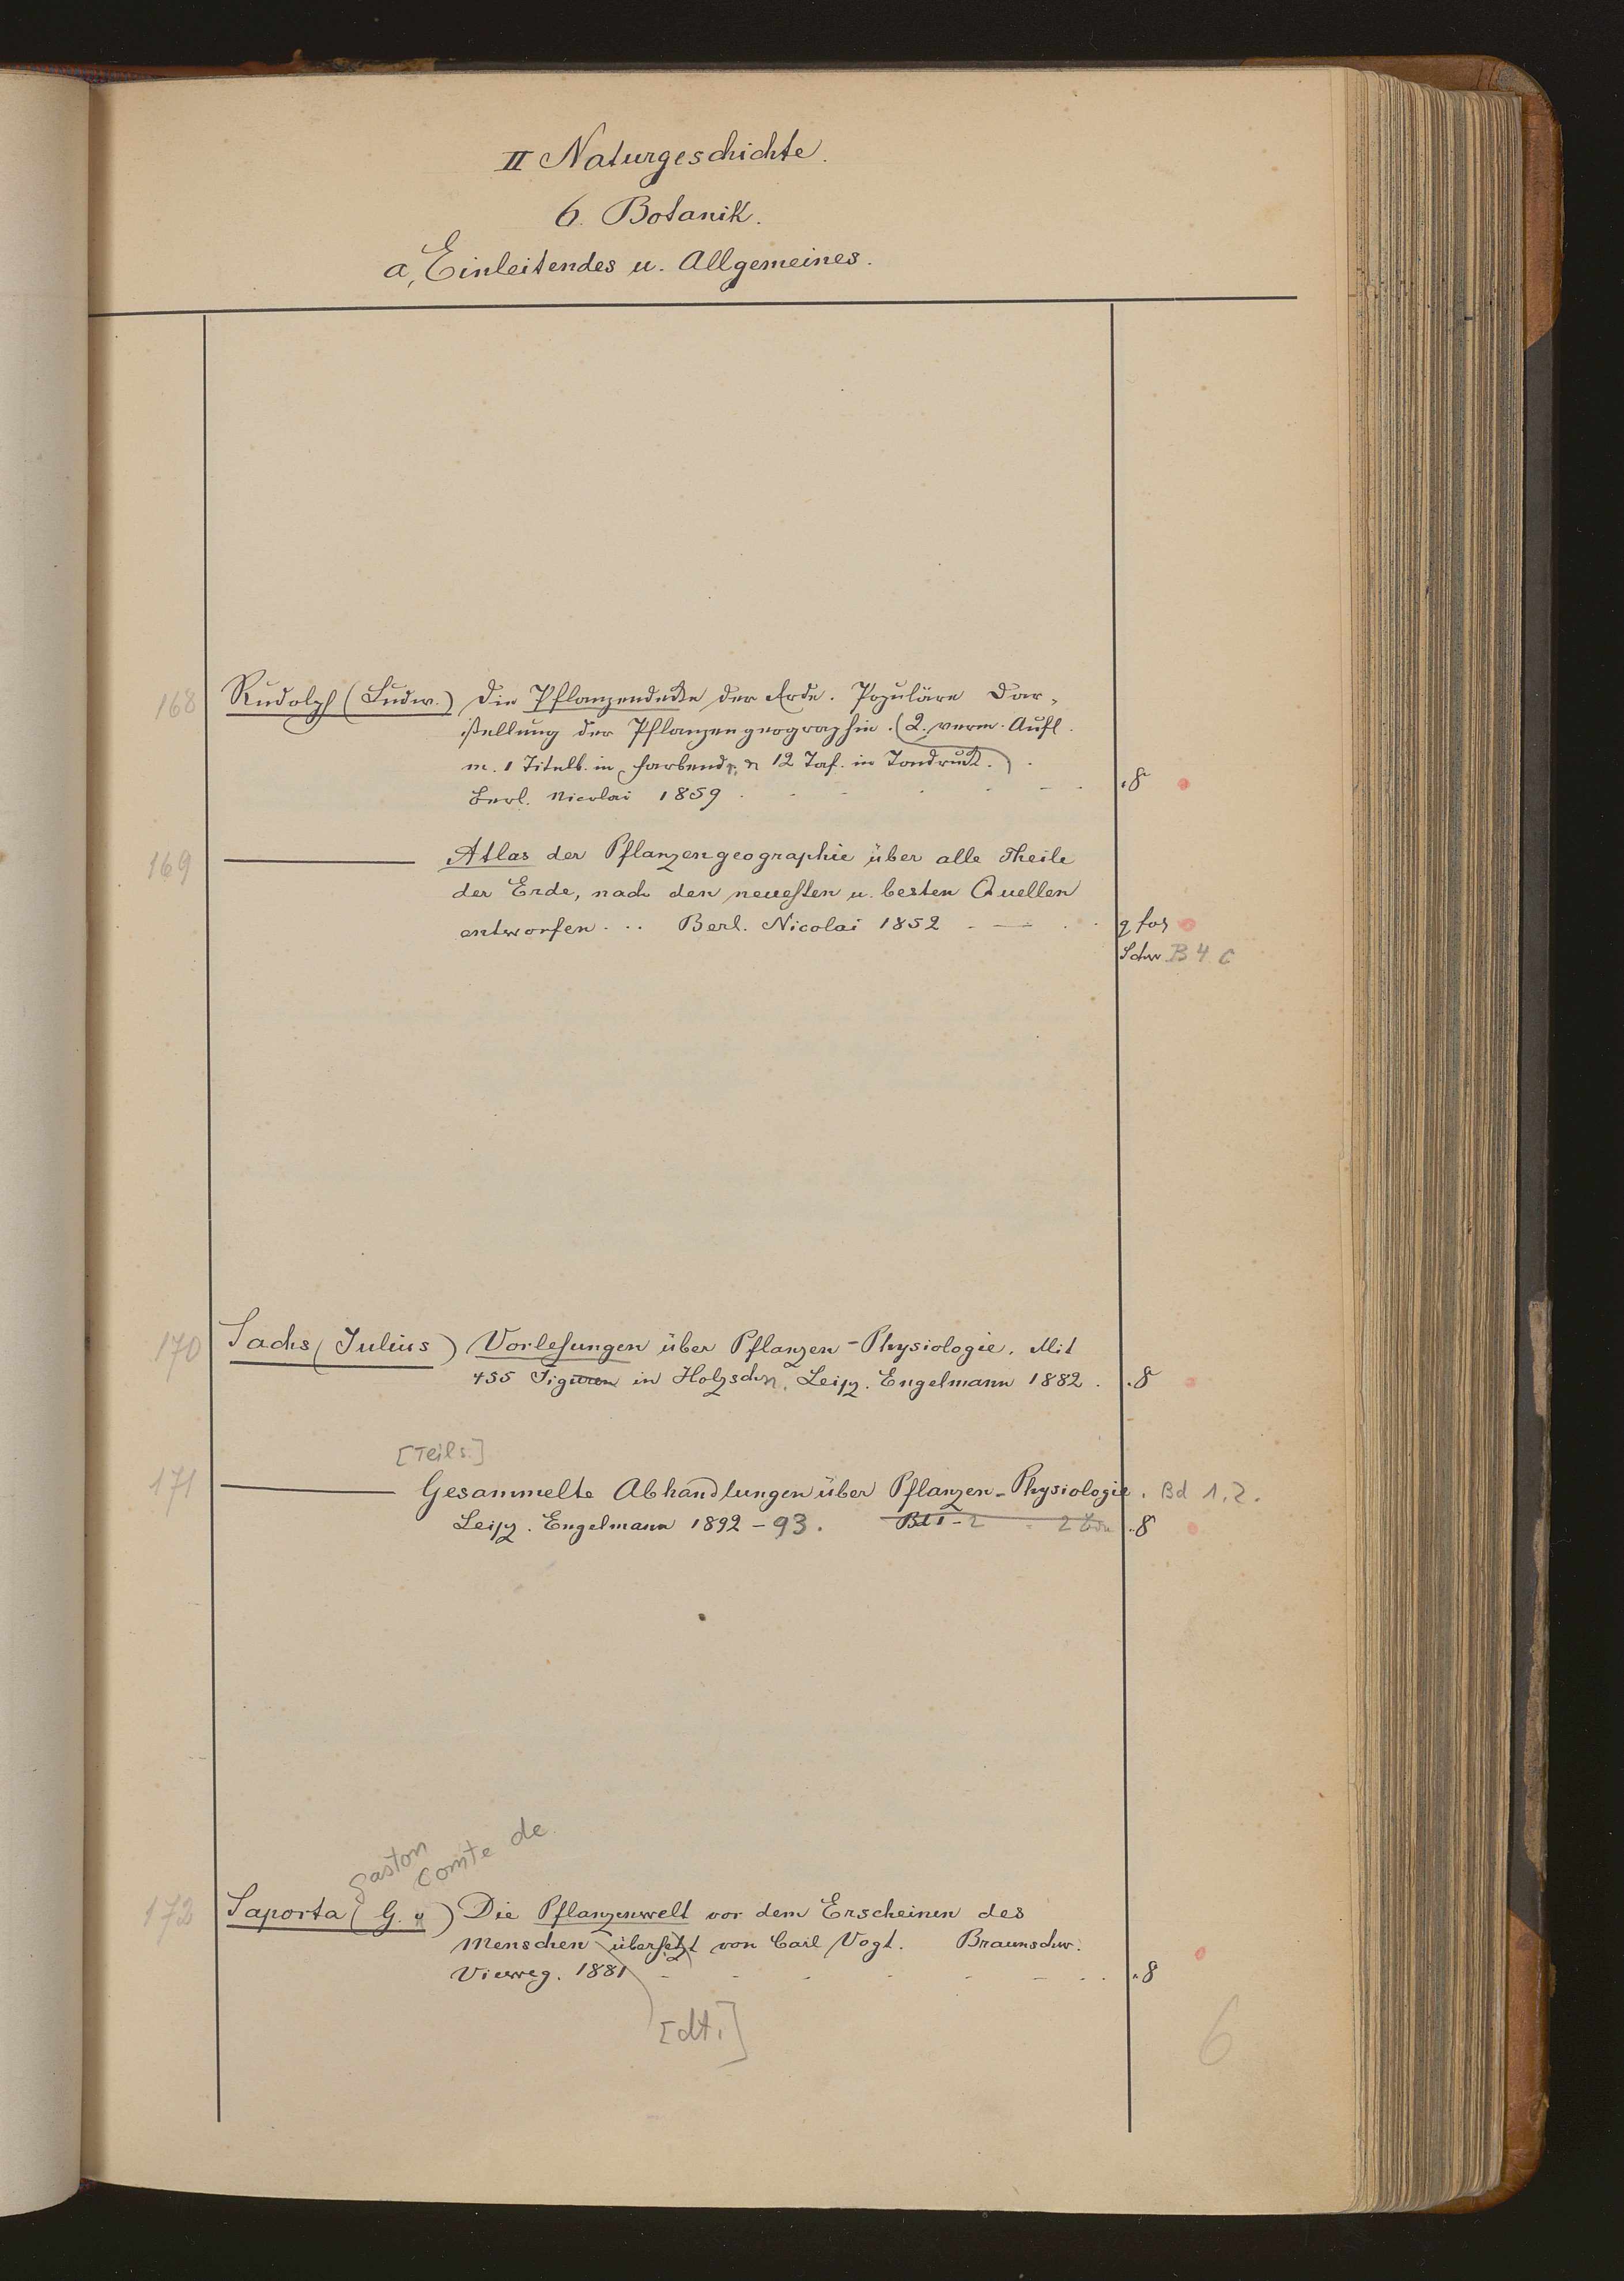 II Naturgeschichte.
6. Botanik.
a, Einleitendes u. Allgemeines.
168 Rudolph (Ludw.) Die Pflanzendecke der Erde. Populäre Dar-
stellung der Pflanzengeographie. (2. verm. Aufl.
m. 1 Titelb. in Farbendr. u 12 Taf. in Tondruck.)
Berl. Nicolai 1859 . 8
169 Atlas der Pflanzengeographie über alle Theile
der Erde, nach den neuesten u. besten Quellen
entworfen ... Berl. Nicolai 1852 q fol
Schw B 4 C
170 Sachs (Julius) Vorlesungen über Pflanzen-Physiologie. Mit
455 Figuren in Holzschn. Leipz. Engelmann 1882 . 8
[Teils.]
171 Gesammelte Abhandlungen über Pflanzen-Physiologie. Bd 1.2.
Leipz. Engelmann 1892-93. Bd 1-2 2 Bde 8
Gaston Comte de
172 Saporta (G. v) Die Pflanzenwelt vor dem Erscheinen des
Menschen übersetzt von Carl Vogt. Braunschw.
Vieweg. 1881 . 8
[dt.]
6